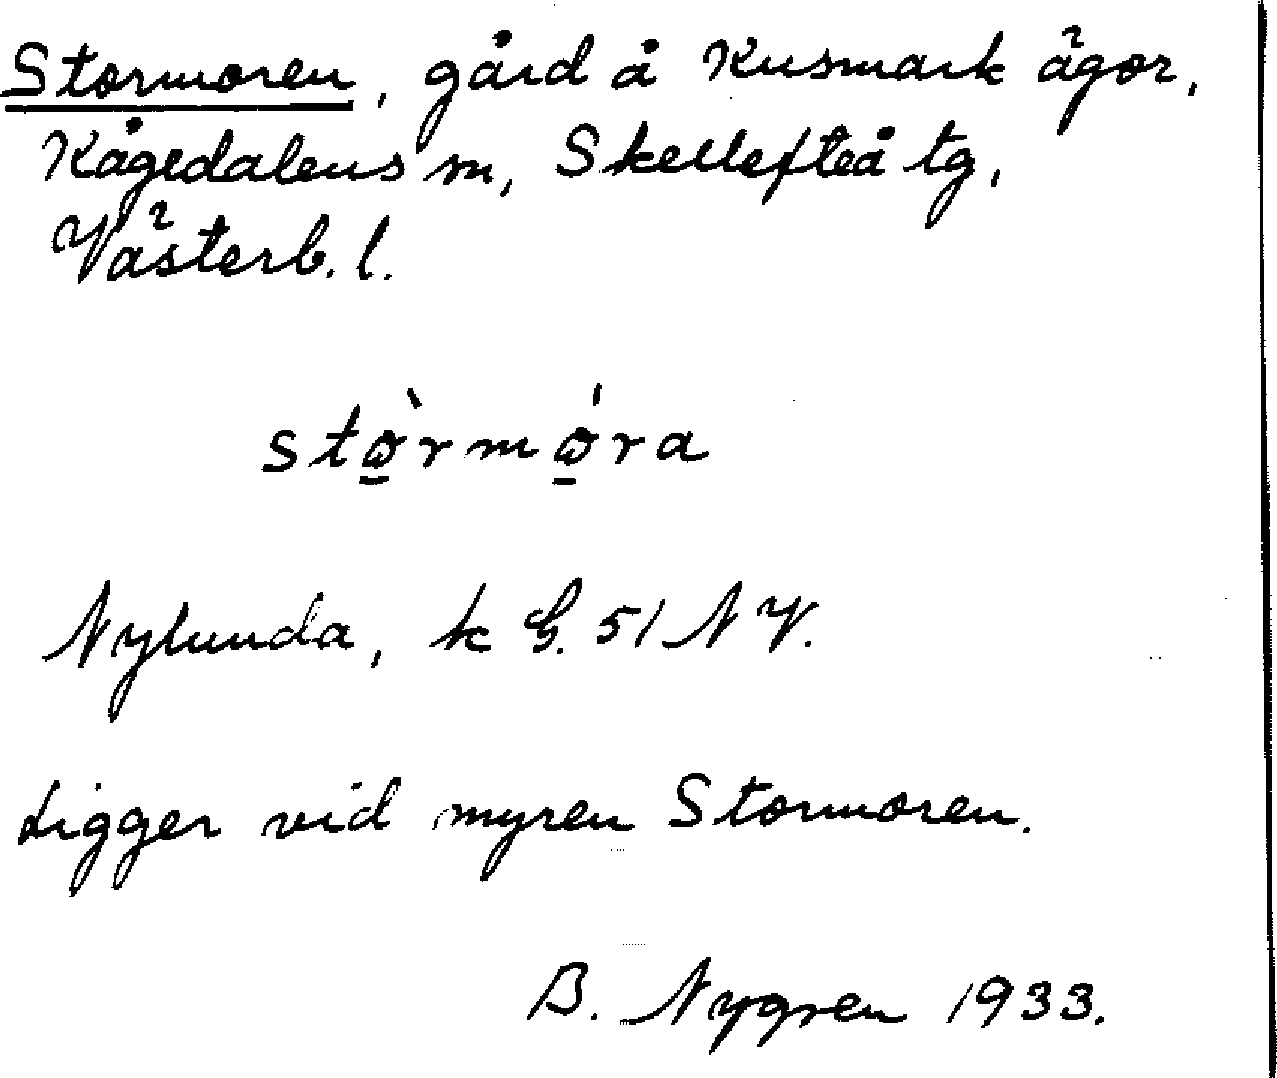 Stormoren, gård å Kusmark ägor,
Kågedalens m, Skellefteå tg,
Västerb. l.
Nylunda, k G. 51 NV.
Ligger vid myren Stormoren.
B. Nygren 1933.